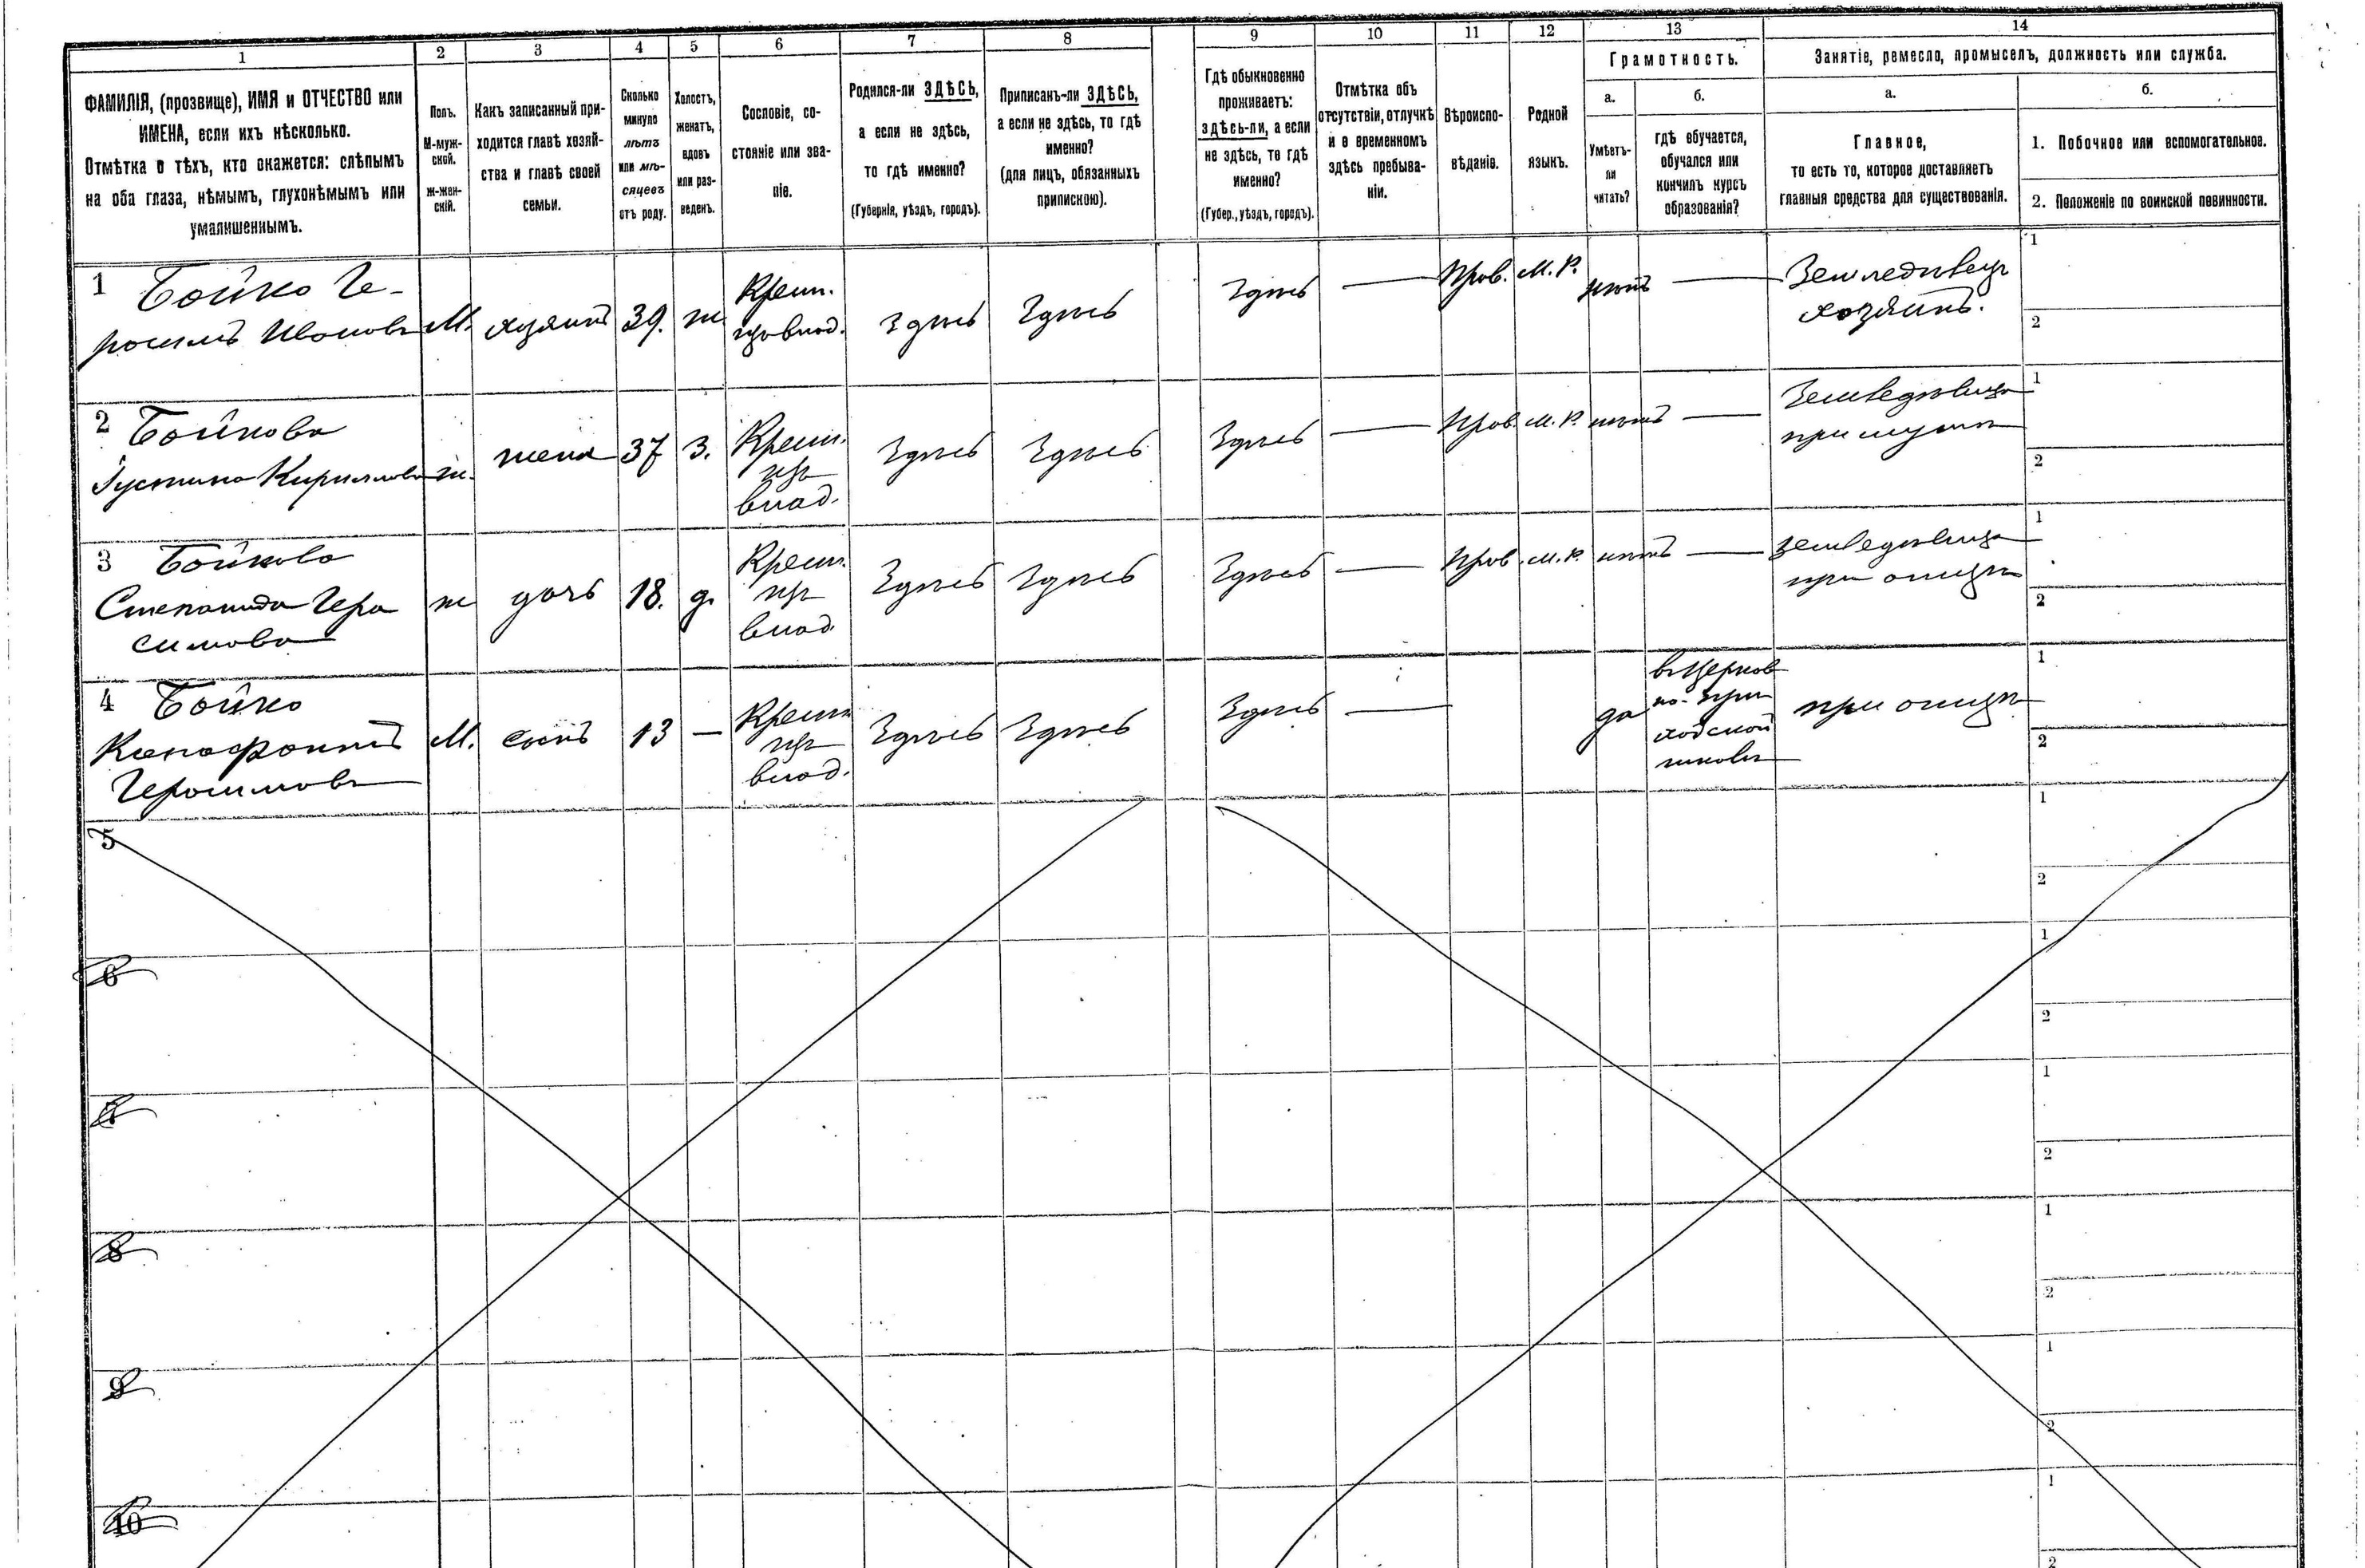 1 2 3 4 5 6 7 8 9 10 11 12 13 14
ФАМИЛІЯ, (прозвище), ИМЯ и ОТЧЕСТВО или
ИМЕНА, если ихъ нѣсколько.
Отмѣтка о тѣхъ, кто окажется: слѣпымъ
на оба глаза, нѣмымъ, глухонѣмымъ или
умалишеннымъ.
Полъ.
М-муж-
ской.
ж-жен-
скій.
Какъ записанный при-
ходится главѣ хозяй-
ства и главѣ своей
семьи.
Сколько
минуло
лѣтъ
или мѣ-
сяцевъ
отъ роду.
Холостъ,
женатъ,
вдовъ
или раз-
веденъ.
Сословіе, со-
стояніе или зва-
ніе.
Родился-ли ЗДѢСЬ,
а если не здѣсь,
то гдѣ именно?
(Губернія, уѣздъ, городъ).
Приписанъ-ли ЗДѢСЬ,
а если не здѣсь, то гдѣ
именно?
(для лицъ, обязанныхъ
припискою).
Гдѣ обыкновенно
проживаетъ:
здѣсь-ли, а если
не здѣсь, то гдѣ
именно?
(Губер., уѣздъ, городъ).
Отмѣтка объ
отсутствіи, отлучкѣ
и о временномъ
здѣсь пребыва-
ніи.
Вѣроиспо-
вѣданіе.
Родной
языкъ.
Грамотность.
а.
Умѣетъ-
ли
читать?
б.
гдѣ обучается,
обучался или
кончилъ курсъ
образованія?
Занятіе, ремесло, промыселъ, должность или служба.
а.
Главное,
то есть то, которое доставляетъ
главныя средства для существованія.
б.
1. Побочное или вспомогательное.
2. Положеніе по воинской повинности.
1 Бойко Ге-
расимъ Ивановъ
М.
хозяинъ
39.
ж
Крест.
изъ влад.
Здѣсь
Здѣсь
Здѣсь
—
Прав.
М. Р.
нѣтъ
—
Земледѣлецъ
хозяинъ.
1
2
2 Бойкова
Іустина Кириллова
ж.
жена
37
з.
Крест.
изъ
влад.
Здѣсь
Здѣсь
Здѣсь
—
Прав.
М. Р.
нѣтъ
—
при мужѣ
1
2
3 Бойкова
Степанида Гера
симова
ж
дочь
18.
д.
Крест.
изъ
влад.
Здѣсь
Здѣсь
Здѣсь
—
Прав.
М. Р.
нѣтъ
—
при отцѣ
1
2
4 Бойко
Ксенофонтъ
Герасимовъ
М.
сынъ
13
—
Крест.
изъ
влад.
Здѣсь
Здѣсь
Здѣсь
—
да
въ церков
но-при
ходской
школѣ
при отцѣ
1
2
5
1
2
6
1
2
7
1
2
8
1
2
9
1
2
10
1
2